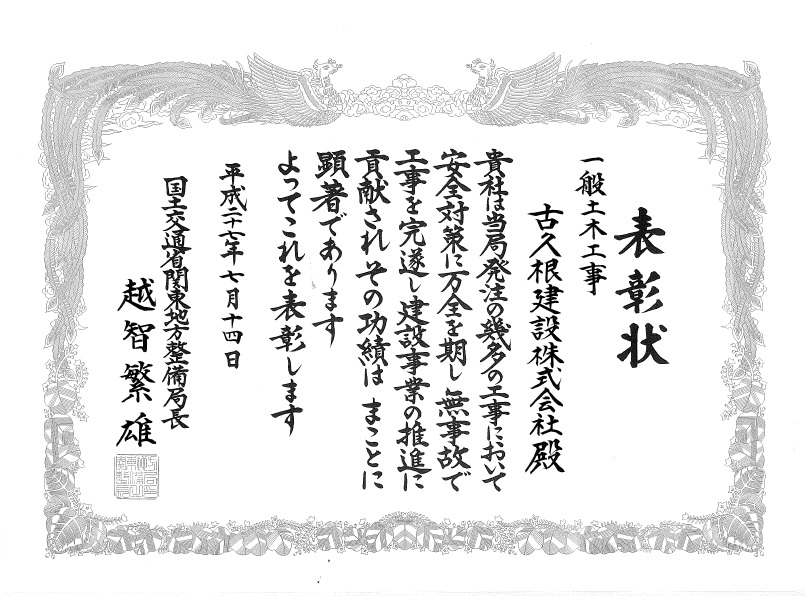 表彰状
一般土木工事
古久根建設株式会社殿
貴社は当局発注の幾多の工事において
安全対策に万全を期し無事故で
工事を完遂し建設事業の推進に
貢献されその功績はまことに
顕著であります
よってこれを表彰します
平成二十七年七月十四日
国土交通省関東地方整備局長
越智繁雄